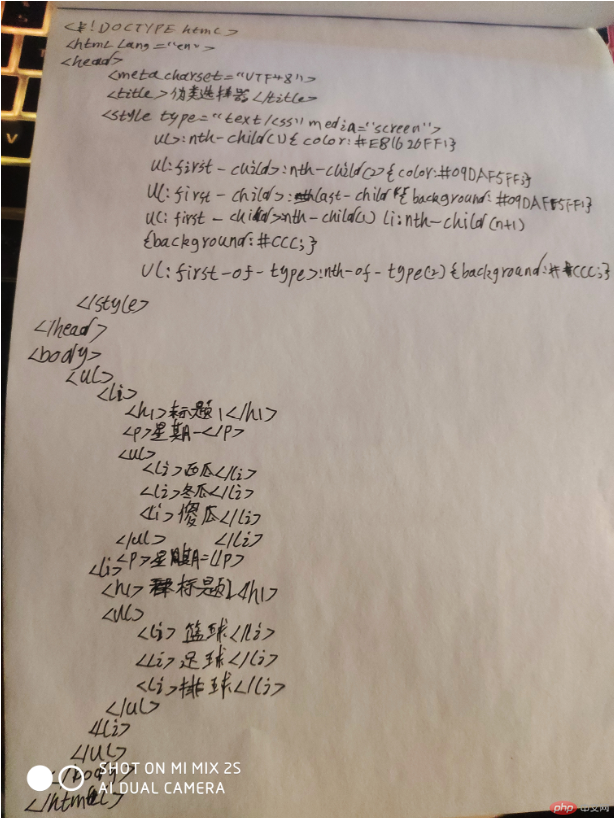 <#!DOCTYPE html>
<html lang="en">
<head>
<meta charset="UTF48">
<title>伪类选择器</title>
<style type="text/css" media="screen">
ul>:nth-child(1){color:#E81626FF;}
ul:first-child>:nth-child(2){color:#09DAF5FF;}
ul:first-child>:nthlast-child{background:#09DAF5FF;}
ul:first-child>nth-child(1) li:nth-child(n+1)
{background:#CCC;}
ul:first-of-type>:nth-of-type(2){background:#CCC;}
</style>
</head>
<body>
<ul>
<li>
<h1>标题1</h1>
<p>星期一</p>
<ul>
<li>西瓜</li>
<li>冬瓜</li>
<li>傻瓜</li>
</ul> </li>
<p>星期二</p>
<li>
<h1>标题2</h1>
<ul>
<li>篮球</li>
<li>足球</li>
<li>排球</li>
</ul>
</li>
</ul>
</body>
</html>
SHOT ON MI MIX 2S
AI DUAL CAMERA
php 中文网